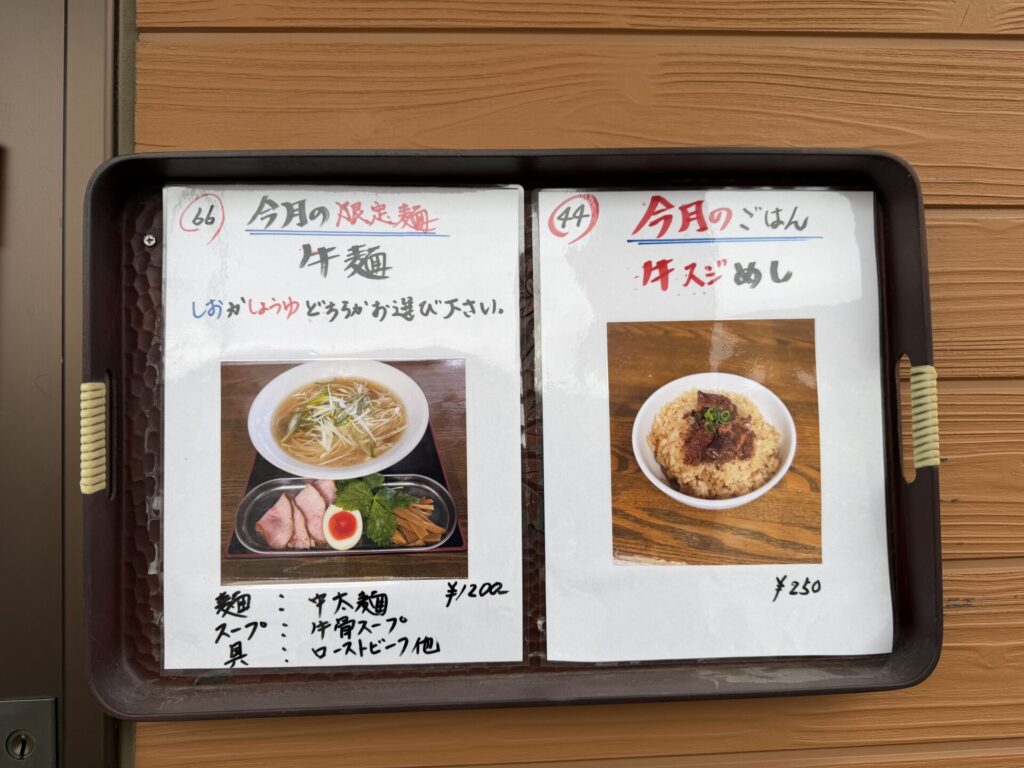 66 今月の限定麺
牛麺
しおかしょうゆどちらかお選び下さい。
麺 : 中太麺 ¥1200
スープ : 牛骨スープ
具 : ローストビーフ他
44 今月のごはん
牛スジめし
¥250